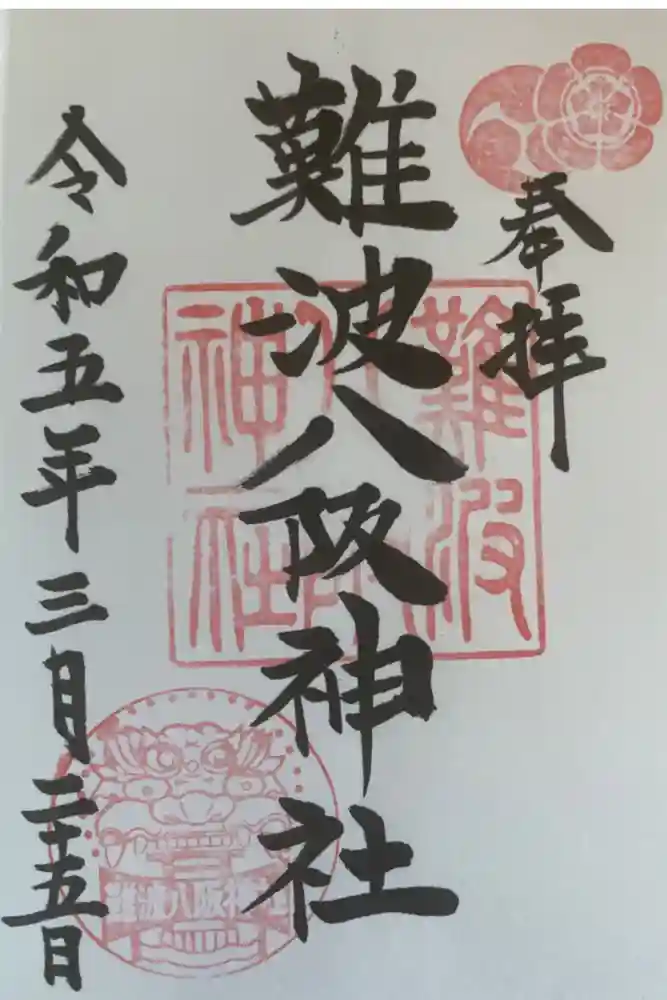 奉拝
難波八阪神社
難波八阪神社
令和五年三月二十五日
難波八阪神社